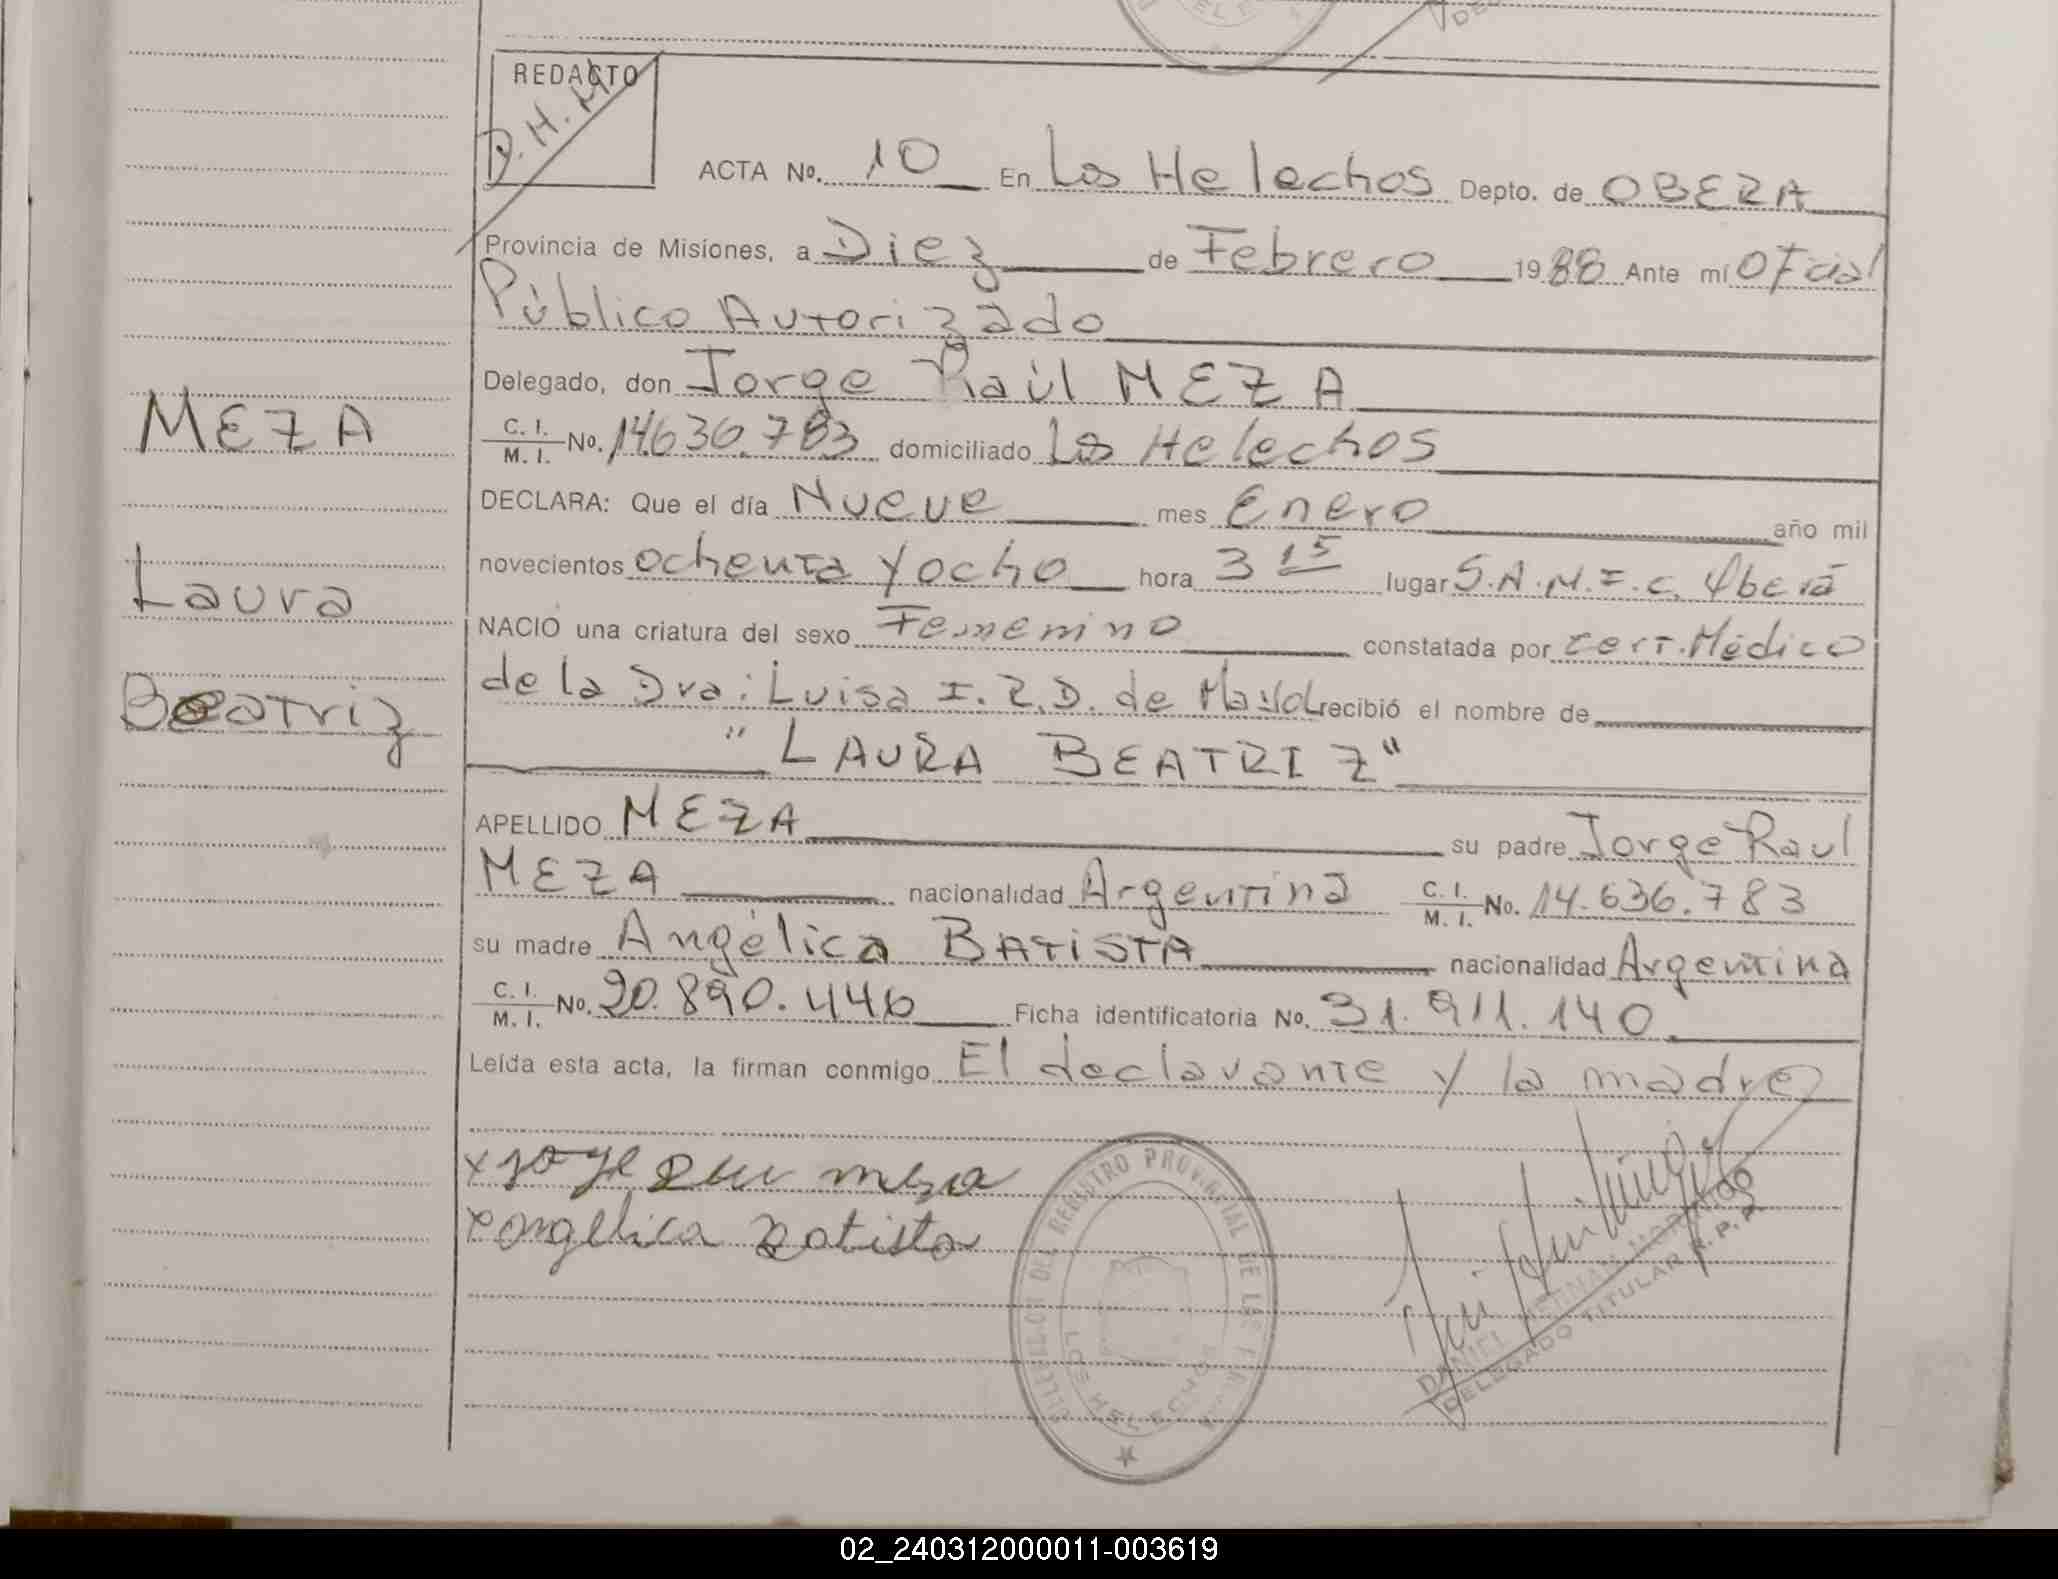 REDACTO
D.H.M
ACTA No. 10 En Los Helechos Depto. de OBERA
Provincia de Misiones, a Diez de Febrero 1988 Ante mí Oficial
Público Autorizado
Delegado, don Jorge Raúl MEZA
C. I.
M. I. No. 14.636.783 domiciliado Los Helechos
MEZA
DECLARA: Que el día Nueve mes Enero año mil
novecientos ochenta y ocho hora 3 15 lugar S.A.M.I.C. Oberá
Laura
NACIO una criatura del sexo Femenino constatada por cert. Médico
de la Dra: Luisa I. R.D. de recibió el nombre de
Beatriz
"LAURA BEATRIZ"
APELLIDO MEZA su padre Jorge Raul
MEZA nacionalidad Argentina C. I.
M. I. No. 14.636.783
su madre Angélica BATISTA nacionalidad Argentina
C. I.
M. I. No. 20.890.446 Ficha identificatoria No. 31.911.140
Leída esta acta, la firman conmigo El declarante y la madre
x Jorge Raul meza
x angelica Batista
DELEGACION DEL REGISTRO PROVINCIAL DE LAS PERSONAS
LOS HELECHOS
DANIEL HERNAN
DELEGADO TITULAR R.P.P.
02_240312000011-003619